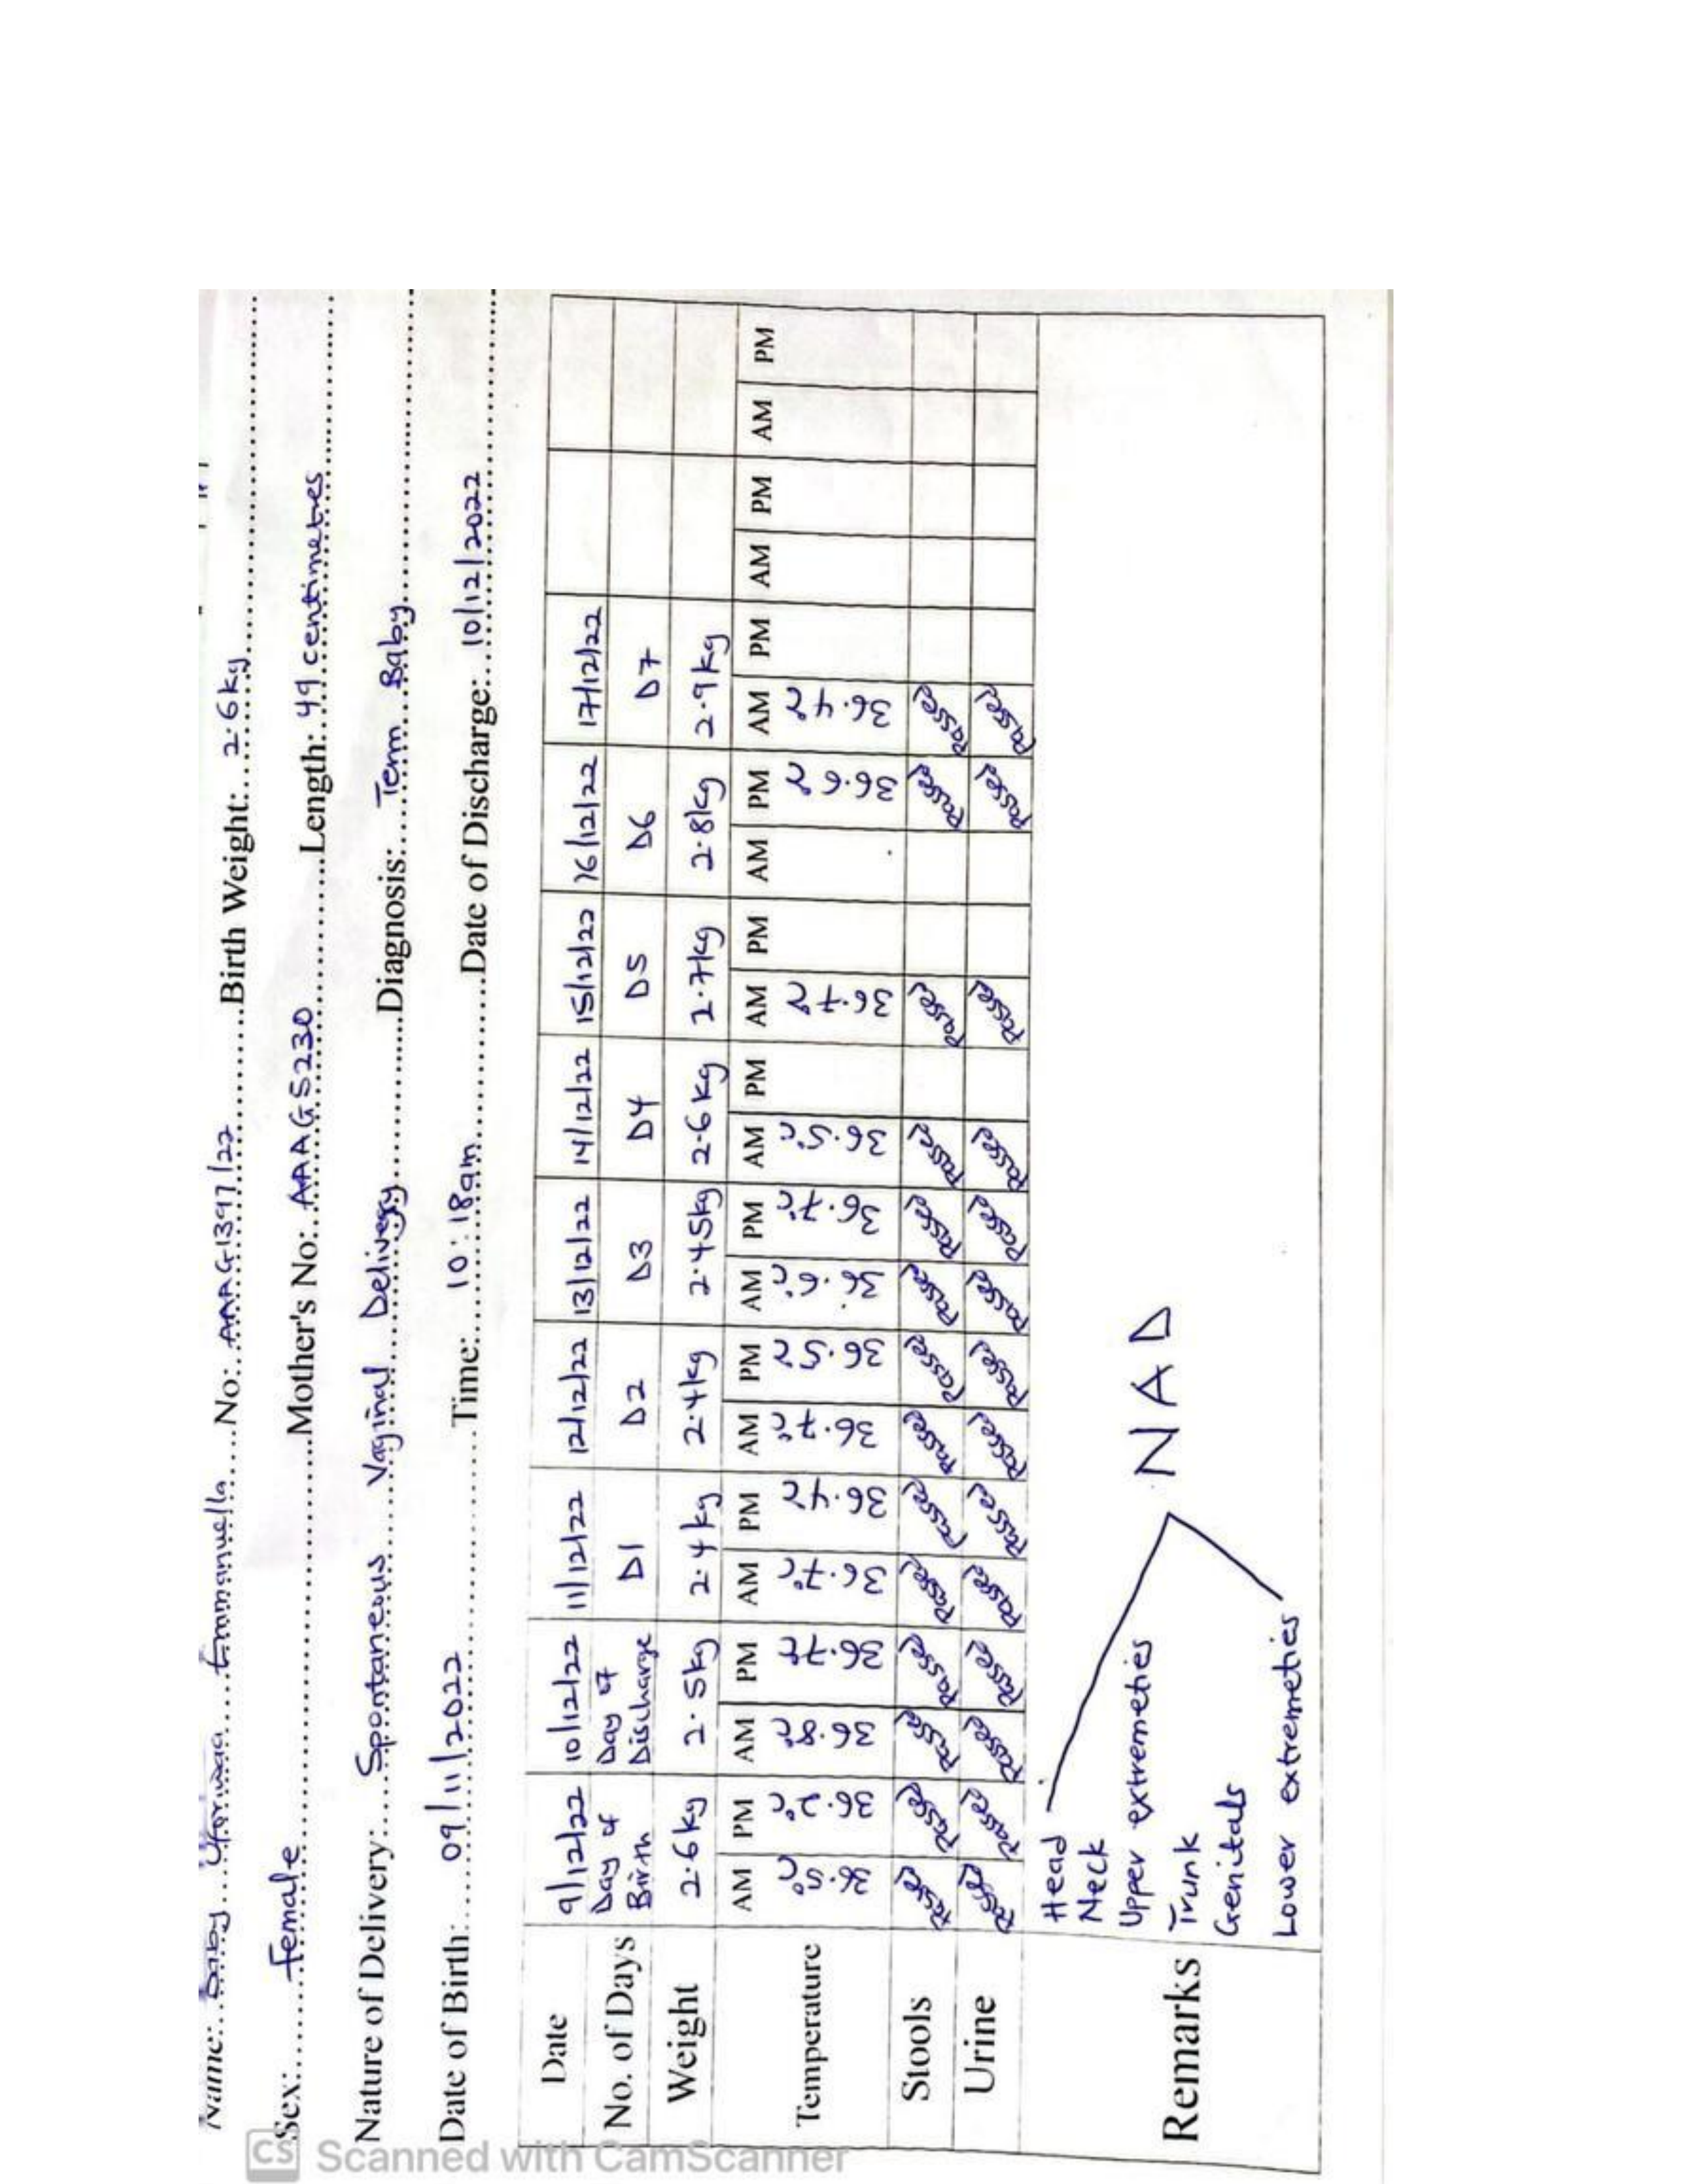 Name: Baby Emmanuella No: AAAG1397/22 Birth Weight: 2.6kg
Sex: Female Mother's No: AAAG5230 Length: 49 centimetres
Nature of Delivery: Spontaneous Vaginal Delivery Diagnosis: Term Baby
Date of Birth: 09/11/2022 Time: 10:18am Date of Discharge: 10/12/2022
Date 9/12/22 10/12/22 11/12/22 12/12/22 13/12/22 14/12/22 15/12/22 16/12/22 17/12/22
No. of Days Day of Birth Day of Discharge D1 D2 D3 D4 D5 D6 D7
Weight 2.6kg 2.5kg 2.4kg 2.4kg 2.45kg 2.6kg 2.7kg 2.8kg 2.9kg
AM PM AM PM AM PM AM PM AM PM AM PM AM PM AM PM AM PM AM PM AM PM
Temperature 36.5°C 36.2°C 36.8°C 36.7°C 36.7°C 36.4°C 36.7°C 36.5°C 36.6°C 36.7°C 36.5°C 36.7°C 36.6°C 36.4°C
Stools Passed Passed Passed Passed Passed Passed Passed Passed Passed Passed Passed Passed Passed Passed
Urine Passed Passed Passed Passed Passed Passed Passed Passed Passed Passed Passed Passed Passed Passed
Remarks
Head
Neck
Upper extremeties
Trunk
Genitals
Lower extremeties
NAD
CS Scanned with CamScanner